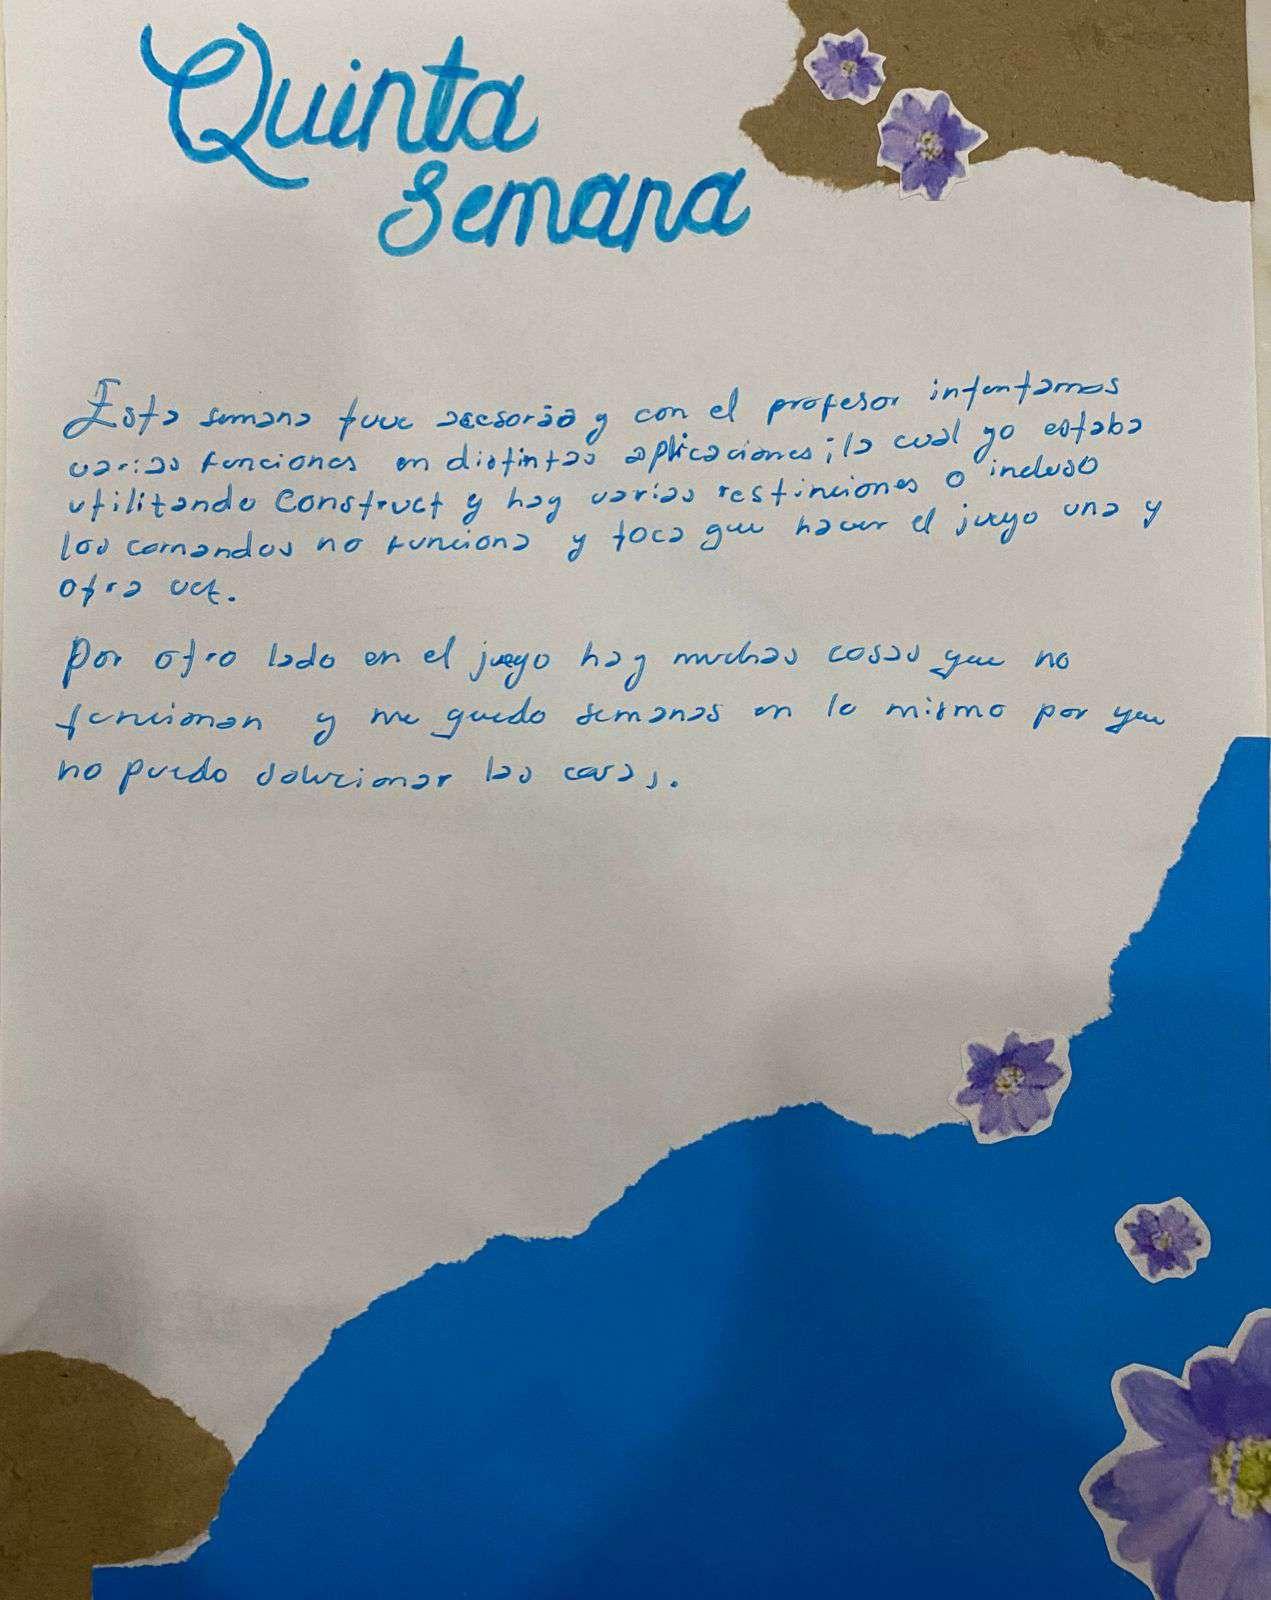 Quinta
Semana
Esta semana tuve asesoría y con el profesor intentamos
varias funciones en distintas aplicaciones; la cual yo estaba
utilizando Construct y hay varias restinciones o incluso
los comandos no funciona y toca que hacer el juego una y
otra vez.
Por otro lado en el juego hay muchas cosas que no
funcionan y me quedo semanas en lo mismo por que
no puedo solucionar las cosas.